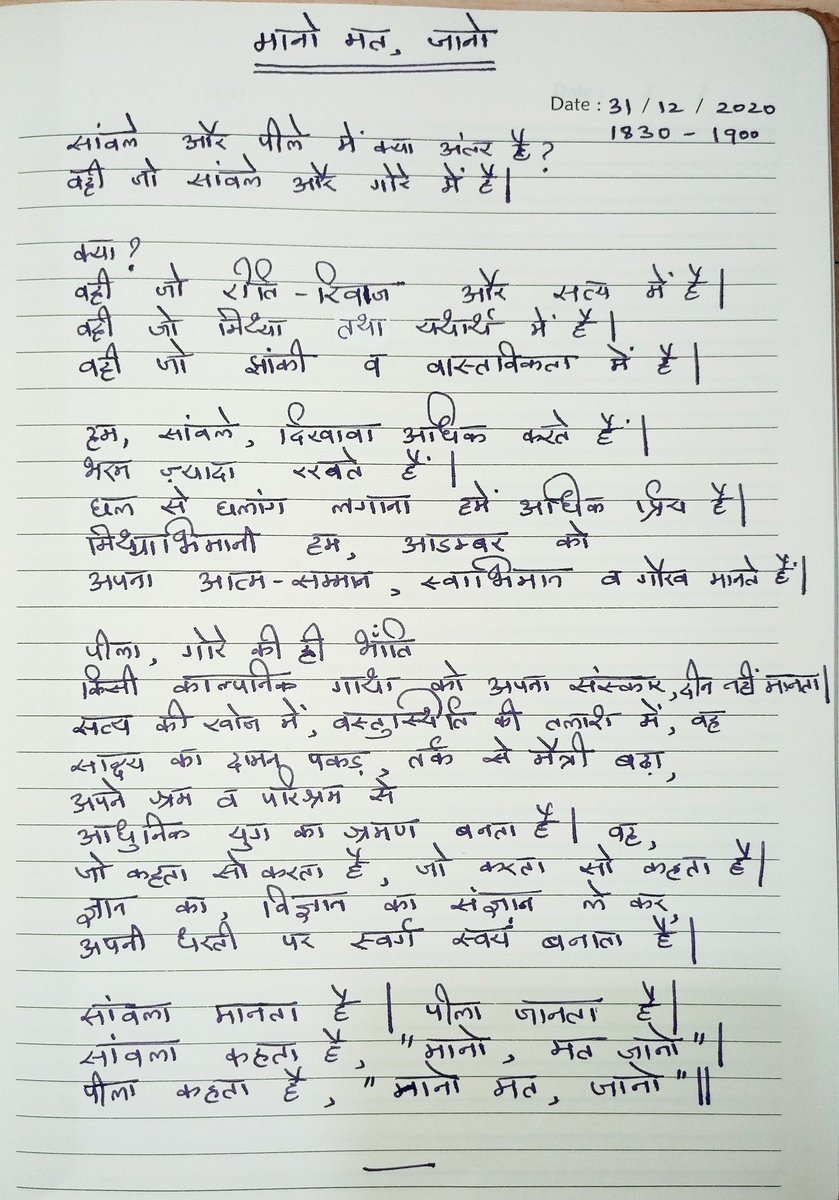 मानो मत, जानो
Date : 31 / 12 / 2020
1830 - 1900
सांवले और पीले में क्या अंतर है?
वही जो सांवले और गोरे में है|
क्या?
वही जो रीति-रिवाज और सत्य में है|
वही जो मिथ्या तथा यथार्थ में है|
वही जो झांकी व वास्तविकता में है|
हम, सांवले, दिखावा अधिक करते हैं|
भरम ज़्यादा रखते हैं|
छल से छलांग लगाना हमें अधिक प्रिय है|
मिथ्याभिमानी हम, आडम्बर को
अपना आत्म-सम्मान, स्वाभिमान व गौरव मानते हैं|
पीला, गोरे की ही भांति
किसी काल्पनिक गाथा को अपना संस्कार, दीन नहीं मानता|
सत्य की खोज में, वस्तुस्थिति की तलाश में, वह
साक्ष्य का दामन पकड़, तर्क से मैत्री बढ़ा,
अपने श्रम व परिश्रम से
आधुनिक युग का श्रमण बनता है| वह,
जो कहता सो करता है, जो करता सो कहता है|
ज्ञान का, विज्ञान का संज्ञान ले कर,
अपनी धरती पर स्वर्ग स्वयं बनाता है|
सांवला मानता है| पीला जानता है|
सांवला कहता है, "मानो, मत जानो"|
पीला कहता है, "मानो मत, जानो"||